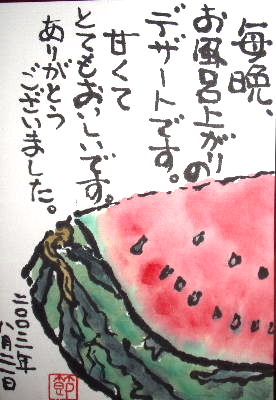 毎晩、
お風呂上がりの
デザートです。
甘くて
とてもおいしいです。
ありがとう
ございました。
二〇〇三年
八月三一日
節